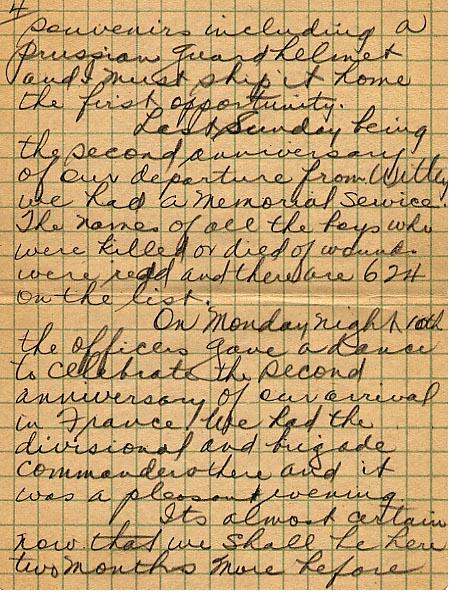 4
souvenirs including a
prussian guard helmet
and I must ship it home
the first opportunity.
Last Sunday being
the second anniversary
of our departure from Witley
we had a Memorial Service.
The names of all the boys who
were killed or died of wounds
were read and there are 624
on the list.
On Monday night 10th
the officers gave a dance
to celebrate the second
anniversary of our arrival
in France. We had the
divisional and brigade
commanders there and it
was a pleasant evening.
Its almost certain
now that we shall be here
two months more before